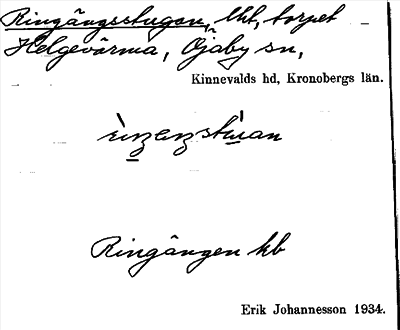 Ringängsstugan, lht, torpet
Helgevärma, Öjaby sn,
Kinnevalds hd, Kronobergs län.
Ringängen hb
Erik Johannesson 1934.